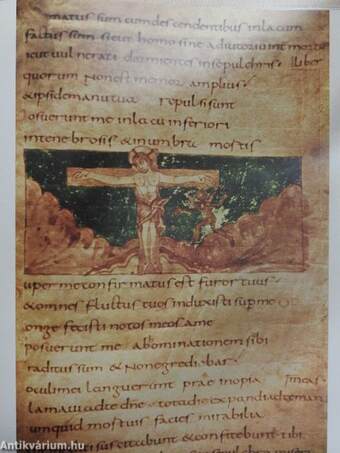 matus sum cum descendentibus in lacum
factus sum sicut homo sine adiutorio int mortu
icut uulnerati dormientes in sepulchris liber
quorum non est memor amplius
& ipsi de manu tua repulsi sunt
osuerunt me in lacu inferiori
in tenebrosis & in umbra mortis
uper me confirmatus est furor tuus
& omnes fluctus tuos induxisti sup me
onge fecisti notos meos a me
posuerunt me abominationem sibi
raditus sum & non egrediebar
oculi mei languerunt prae inopia
lamaui ad te dne tota die expandi ad te man
umquid mortuis facies mirabilia
suscitabunt & confitebt tibi
Antikvárium.hu